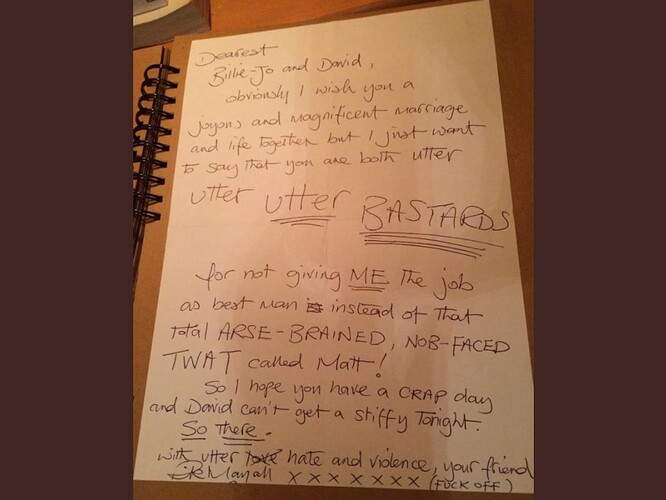 Dearest
Billie-Jo and David,
obviously I wish you a
joyous and magnificent marriage
and life together but I just want
to say that you are both utter
utter utter BASTARDS
for not giving ME the job
as best man instead of that
total ARSE-BRAINED, NOB-FACED
TWAT called Matt!
So I hope you have a CRAP day
and David can't get a stiffy Tonight.
So there.
with utter love hate and violence, your friend
Rik Mayall X X X X X X X (FUCK OFF)